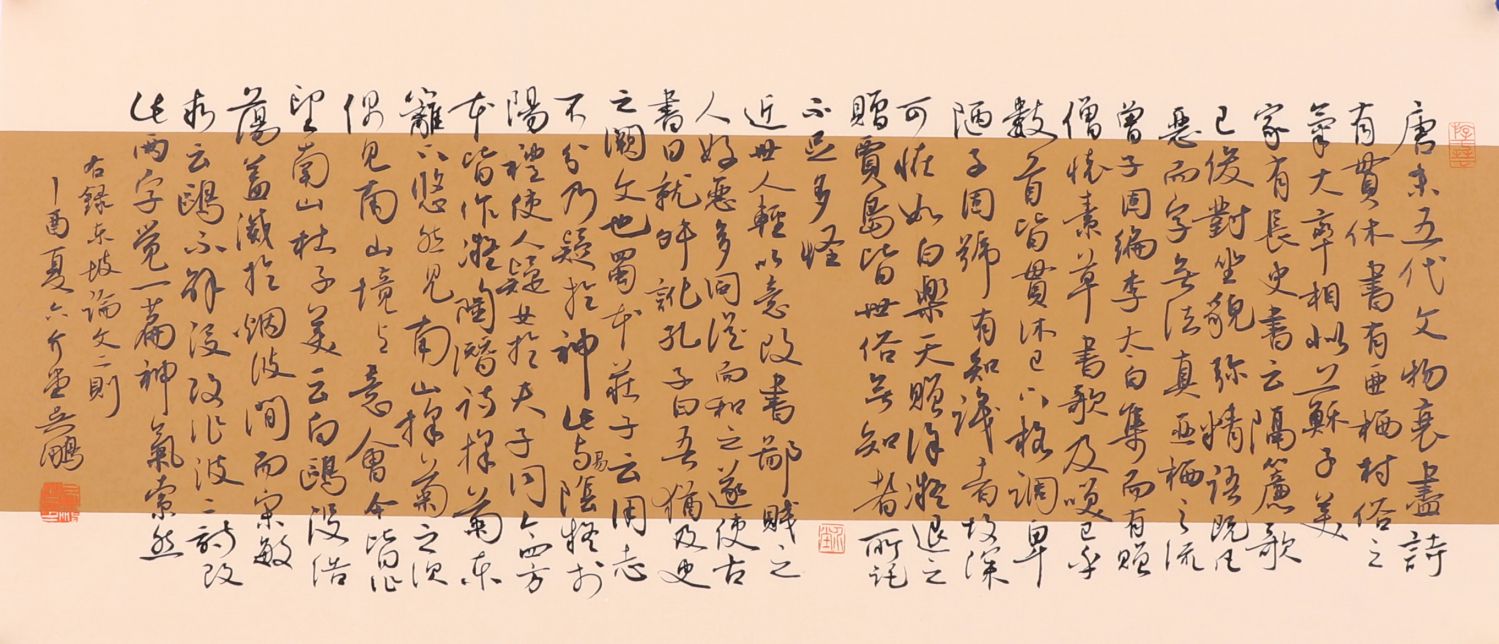 唐末五代文物衰盡詩
有貫休書有亜栖村俗之
氣大率相似蘇子美
家有長史書云隔簾歌
已俊對坐貌弥精語既凡
惡而字無法真亜栖之流
曾子固編李太白集而有贈
僧懷素草書歌及笑已乎
數首皆貫休已下格調卑
陋子固號有知識者故深
可怪如白樂天贈徐凝退之
贈賈島皆世俗無知者所託
不足多怪
近世人輕以意改書鄙賤之
人好惡多同從而和之遂使古
書日就舛訛孔子曰吾猶及史
之闕文也蜀本莊子云用志
不分乃疑於神此与易陰擬於
陽禮使人疑女於夫子同今四方
本皆作凝陶潛詩採菊東
籬下悠然見南山採菊之次
偶見南山境与意會今皆作
望南山杜子美云白鷗没浩
蕩蓋滅於烟波間而宋敏
求云鷗不解没改作波二詩改
此兩字覺一篇神氣索然
右録東坡論文二則
丁酉夏六介堂吳鵬